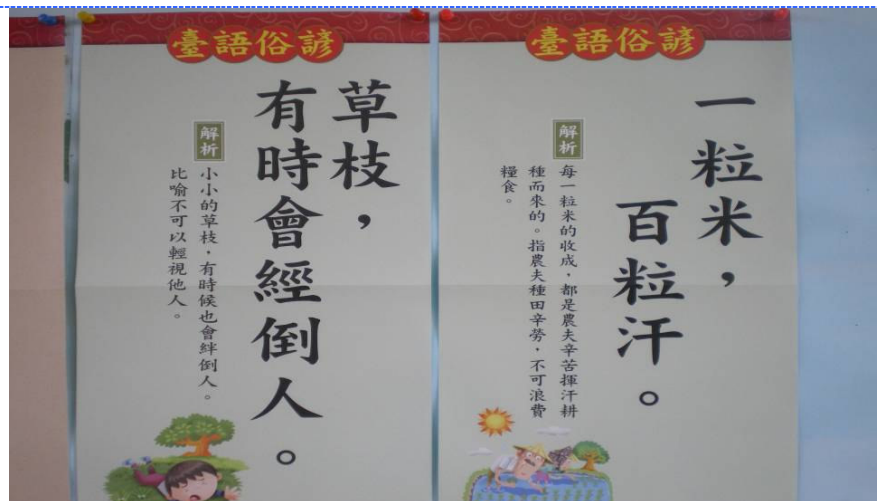 臺語俗諺
一粒米，
百粒汗。
解析
每一粒米的收成，都是農夫辛苦揮汗耕
種而來的。指農夫種田辛勞，不可浪費
糧食。
臺語俗諺
草枝，
有時會經倒人。
解析
小小的草枝，有時候也會絆倒人。
比喻不可以輕視他人。